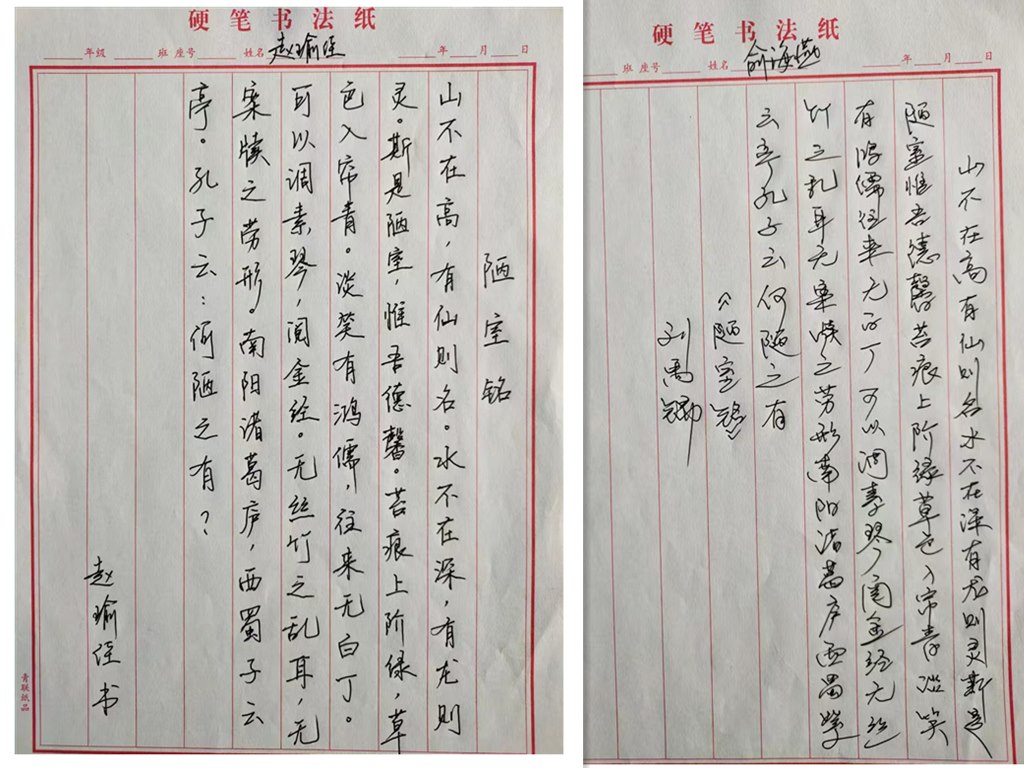 硬笔书法纸
年级 班 座号 姓名 赵瑜 年 月 日
陋室铭
山不在高，有仙则名。水不在深，有龙则
灵。斯是陋室，惟吾德馨。苔痕上阶绿，草
色入帘青。谈笑有鸿儒，往来无白丁。
可以调素琴，阅金经。无丝竹之乱耳，无
案牍之劳形。南阳诸葛庐，西蜀子云
亭。孔子云：何陋之有？
赵瑜书
青联纸品
硬笔书法纸
班 座号 姓名 俞海燕 年 月 日
山不在高有仙则名水不在深有龙则灵斯是
陋室惟吾德馨苔痕上阶绿草色入帘青谈笑
有鸿儒往来无白丁可以调素琴阅金经无丝
竹之乱耳无案牍之劳形南阳诸葛庐西蜀
云亭孔子云何陋之有
《陋室铭》
刘禹锡